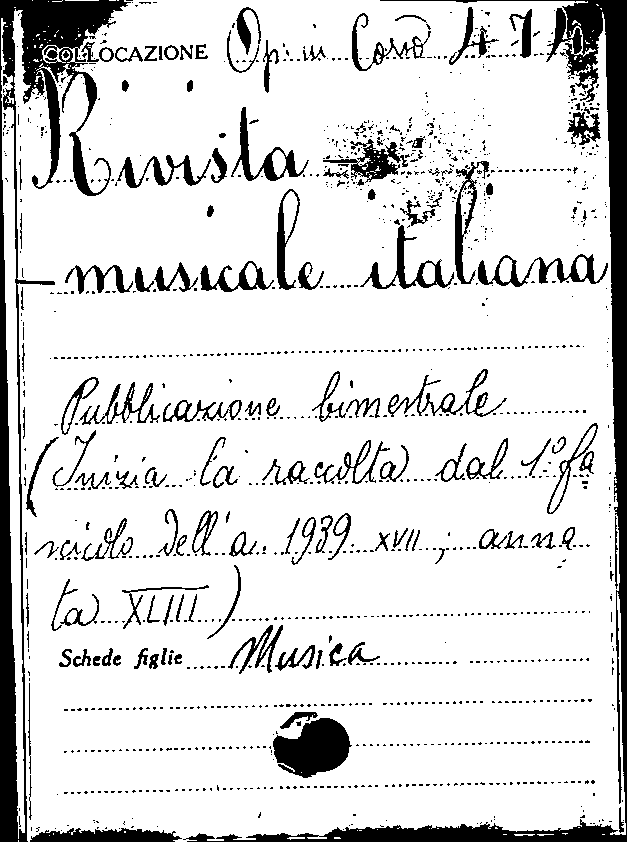 COLLOCAZIONE Op. in Corso 471
Rivista
musicale italiana
Pubblicazione bimestrale
(Inizia la raccolta dal 1º fa=
scicolo dell'a. 1939 XVII ; anna=
ta XLIII)
Schede figlie Musica